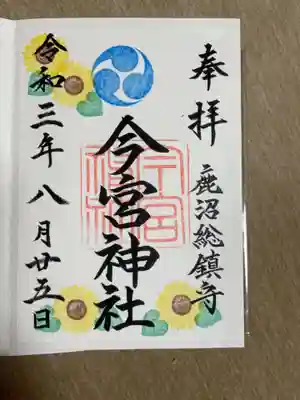 奉拝
鹿沼総鎮守
今宮神社
令和三年八月廿五日